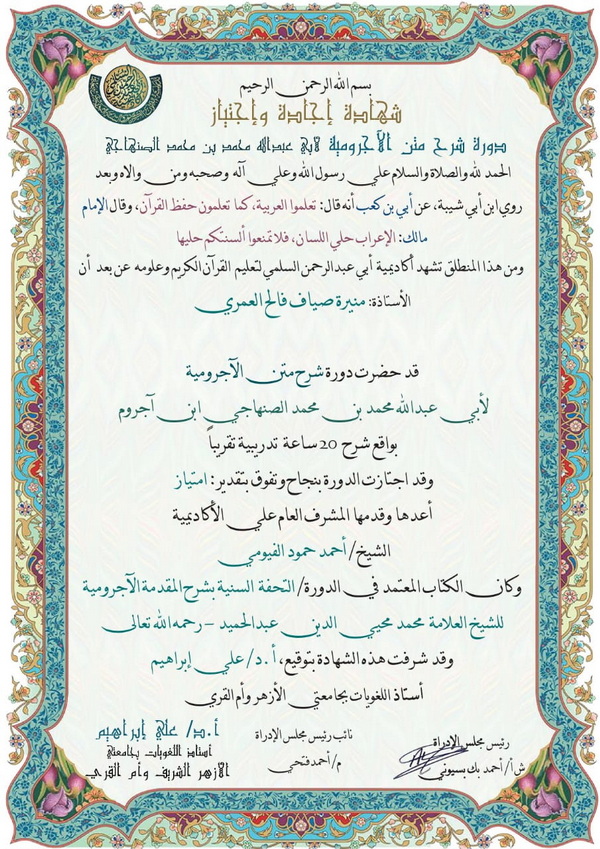 بسم الله الرحمن الرحيم
شهادة إجادة وإجتياز
دورة شرح متن الآجرومية لابي عبدالله محمد بن محمد الصنهاجي
الحمد لله والصلاة والسلام علي رسول الله وعلي آله وصحبه ومن والاه وبعد
روي ابن أبي شيبة، عن أبي بن كعب أنه قال: تعلموا العربية، كما تعلمون حفظ القرآن، وقال الإمام
مالك: الإعراب حلي اللسان، فلا تمنعوا ألسنتكم حليها
ومن هذا المنطلق تشهد أكاديمية أبي عبد الرحمن السلمي لتعليم القرآن الكريم وعلومه عن بعد أن
الأستاذة: منيرة صياف فالح العمري
قد حضرت دورة شرح متن الآجرومية
لأبي عبدالله محمد بن محمد الصنهاجي ابن آجروم
بواقع شرح 20 ساعة تدربية تقرباً
وقد اجتازت الدورة بنجاح وتفوق بتقدير: امتياز
أعدها وقدمها المشرف العام علي الأكاديمية
الشيخ/ أحمد حمود الفيومي
وكان الكتاب المعتمد في الدورة/ التحفة السنية بشرح المقدمة الآجرومية
للشيخ العلامة محمد محيي الدين عبدالحميد - رحمه الله تعالى
وقد شرفت هذه الشهادة بتوقيع، أ.د/ علي إبراهيم
أستاذ اللغويات بجامعتي الأزهر وأم القري
رئيس مجلس الإدراة
ش أ/ أحمد بك بسيوني
نائب رئيس مجلس الإدراة
م/ أحمد فتحي
أ.د/ علي إبراهيم
أستاذ اللغويات بجامعتي
الازهر الشريف وأم القري